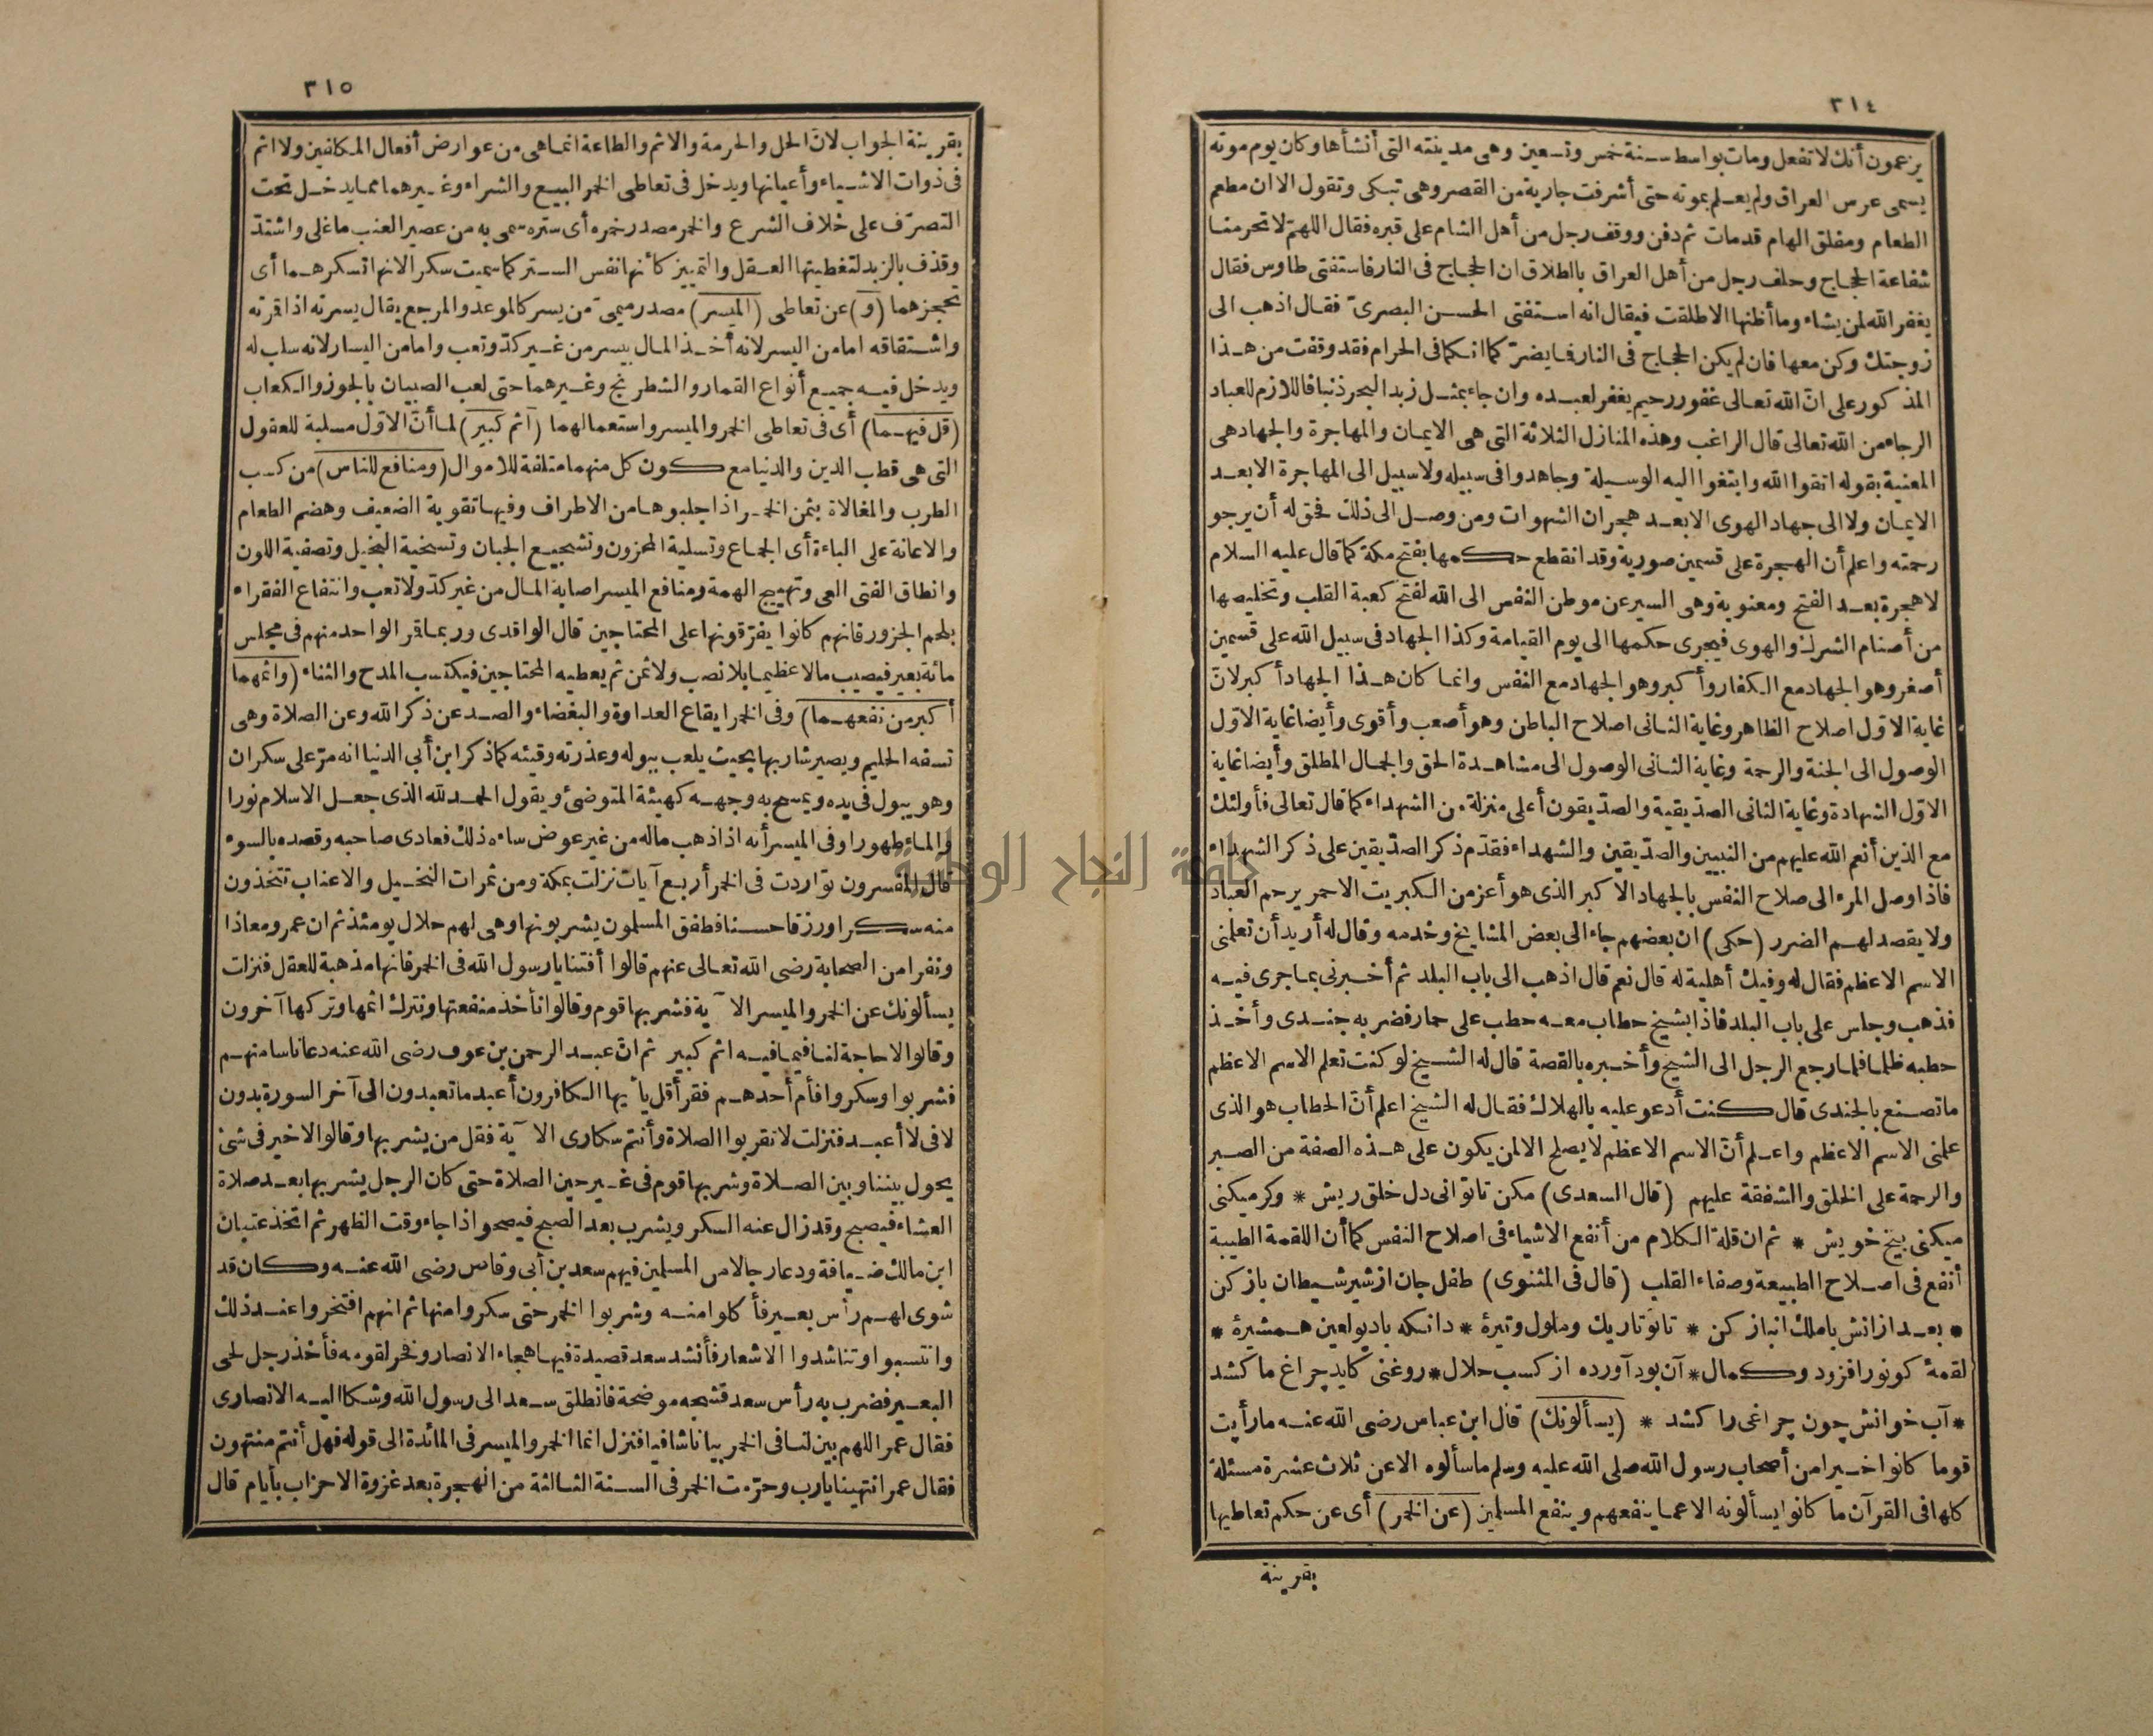 ٣١٤
يزعمون أنك لا تفعل ومات بواسط سنة خمس وتسعين وهى مدينته التى أنشأها وكان يوم موته
يسمى عرس العراق ولم يعلم بموته حتى أشرفت جارية من القصر وهى تبكى وتقول الا ان مطعم
الطعام ومفلق الهام قد مات ثم دفن ووقف رجل من أهل الشام على قبره فقال اللهمّ لا تحرمنا
شفاعة الحجاج وحلف رجل من أهل العراق بالطلاق ان الحجاج فى النار فاستفتى طاوس فقال
يغفر الله لمن يشاء وما أظنها الا طلقت فيقال انه استفتى الحسن البصرىّ فقال اذهب الى
زوجتك وكن معها فان لم يكن الحجاج فى النار فما يضرّ كما انكما فى الحرام فقد وقفت من هذا
المذكور على انّ الله تعالى غفور رحيم يغفر لعبده وان جاء بمثل زبد البحر ذنبا فاللازم للعباد
الرجاء من الله تعالى قال الراغب وهذه المنازل الثلاثة التى هى الايمان والمهاجرة والجهاد هى
المعنية بقوله اتقوا الله وابتغوا اليه الوسيلة وجاهدوا فى سبيله ولا سبيل الى المهاجرة الا بعد
الايمان ولا الى جهاد الهوى الا بعد هجران الشهوات ومن وصل الى ذلك فحق له أن يرجو
رحمته واعلم أن الهجرة على قسمين صورية وقد انقطع حكمها بفتح مكة كما قال عليه السلام
لا هجرة بعد الفتح ومعنوية وهى السير عن موطن النفس الى الله لفتح كعبة القلب وتخليصها
من أصنام الشرك والهوى فيجرى حكمها الى يوم القيامة وكذا الجهاد فى سبيل الله على قسمين
أصغر وهو الجهاد مع الكفار وأكبر وهو الجهاد مع النفس وانما كان هذا الجهاد أكبر لانّ
غاية الاوّل اصلاح الظاهر وغاية الثانى اصلاح الباطن وهو أصعب وأقوى وأيضا غاية الاوّل
الوصول الى الجنة والرحمة وغاية الثانى الوصول الى مشاهدة الحق والجمال المطلق وأيضا غاية
الاوّل الشهادة وغاية الثانى الصدّيقية والصدّيقون أعلى منزلة من الشهداء كما قال تعالى فأولئك
مع الذين أنعم الله عليهم من النبيين والصدّيقين والشهداء فقدّم ذكر الصدّيقين على ذكر الشهداء
فاذا وصل المرء الى صلاح النفس بالجهاد الاكبر الذى هو أعز من الكبريت الاحمر يرحم العباد
ولا يقصد لهم الضرر (حكى) ان بعضهم جاء الى بعض المشايخ وخدمه وقال له أريد أن تعلمنى
الاسم الاعظم فقال له وفيك أهلية له قال نعم قال اذهب الى باب البلد ثم أخبرنى بما جرى فيه
فذهب وجلس على باب البلد فاذا بشيخ حطاب معه حطب على حمار فضربه جندى وأخذ
حطبه ظلما فلما رجع الرجل الى الشيخ وأخبره بالقصة قال له الشيخ لو كنت تعلم الاسم الاعظم
ما تصنع بالجندى قال كنت أدعو عليه بالهلاك فقال له الشيخ اعلم أنّ الحطاب هو الذى
علمنى الاسم الاعظم واعلم أنّ الاسم الاعظم لا يصلح الا لمن يكون على هذه الصفة من الصبر
والرحمة على الخلق والشفقة عليهم (قال السعدى) مكن تاتوانى دل خلق ريش * وكر ميكنى
ميكنى بيخ خويش * ثم ان قلة الكلام من أنفع الاشياء فى اصلاح النفس كما أن اللقمة الطيبة
أنفع فى اصلاح الطبيعة وصفاء القلب (قال فى المثنوى) طفل جان از شير شيطان باز كن
* بعد ازانش با ملك انباز كن * تا تو تاريك وملول وتيرهٔ * دانكه با ديو لعين همشيرهٔ *
لقمهٔ كو نور افزود وكمال * آن بود آورده از كسب حلال * روغنى كايد چراغ ما كشد
* آب خوانش چون چراغى را كشد * (يسألونك) قال ابن عباس رضى الله عنه ما رأيت
قوما كانوا خيرا من أصحاب رسول الله صلى الله عليه وسلم ما سألوه الا عن ثلاث عشرة مسئلة
كلها فى القرآن ما كانوا يسألونه الا عما ينفعهم وينفع المسلمين (عن الخمر) أى عن حكم تعاطيها
بقرينة
٣١٥
بقرينة الجواب لانّ الحل والحرمة والاثم والطاعة انما هى من عوارض أفعال المكلفين ولا اثم
فى ذوات الاشياء وأعيانها ويدخل فى تعاطى الخمر البيع والشراء وغيرهما مما يدخل تحت
التصرّف على خلاف الشرع والخمر مصدر خمره أى ستره سمى به من عصير العنب ما غلى واشتدّ
وقذف بالزبد لتغطيتها العقل والتمييز كأنها نفس الستر كما سميت سكرا لانها تسكرهما أى
تحجزهما (و) عن تعاطى (الميسر) مصدر ميمىّ من يسر كالموعد والمرجع يقال يسرته اذا قمرته
واشتقاقه اما من اليسر لانه أخذ المال بيسر من غير كدّ وتعب واما من اليسار لانه سلب له
ويدخل فيه جميع أنواع القمار والشطرنج وغيرهما حتى لعب الصبيان بالجوز والكعاب
(قل فيهما) أى فى تعاطى الخمر والميسر واستعمالهما (اثم كبير) لما أنّ الاوّل مسلبة للعقول
التى هى قطب الدين والدنيا مع كون كل منهما متلفة للاموال (ومنافع للناس) من كسب
الطرب والمغالاة بثمن الخمر اذا جلبوها من الاطراف وفيها تقوية الضعيف وهضم الطعام
والاعانة على الباءة أى الجماع وتسلية المحزون وتشجيع الجبان وتسخية البخيل وتصفية اللون
وانطاق الفتى العى وتهييج الهمة ومنافع الميسر اصابة المال من غير كدّ ولا تعب وانتفاع الفقراء
بلحم الجزور فانهم كانوا يفرّقونها على المحتاجين قال الواقدى وربما قمر الواحد منهم فى مجلس
مائة بعير فيصيب مالا عظيما بلا نصب ولا ثمن ثم يعطيه المحتاجين فيكتسب المدح والثناء (واثمهما
أكبر من نفعهما) وفى الخمر ايقاع العداوة والبغضاء والصد عن ذكر الله وعن الصلاة وهى
تسفه الحليم ويصير شاربها بحيث يلعب ببوله وعذرته وقيئه كما ذكر ابن أبى الدنيا انه مرّ على سكران
وهو يبول فى يده ويمسح به وجهه كهيئة المتوضئ ويقول الحمد لله الذى جعل الاسلام نورا
والماء طهورا وفى الميسر أنه اذا ذهب ماله من غير عوض ساءه ذلك فعادى صاحبه وقصده بالسوء
قال المفسرون تواردت فى الخمر أربع آيات نزلت بمكة ومن ثمرات النخيل والاعناب تتخذون
منه سكرا ورزقا حسنا فطفق المسلمون يشربونها وهى لهم حلال يومئذ ثم ان عمر ومعاذا
ونفرا من الصحابة رضى الله تعالى عنهم قالوا أفتنا يا رسول الله فى الخمر فانها مذهبة للعقل فنزلت
يسألونك عن الخمر والميسر الآية فشربها قوم وقالوا نأخذ منفعتها ونترك اثمها وتركها آخرون
وقالوا لا حاجة لنا فيما فيه اثم كبير ثم انّ عبد الرحمن بن عوف رضى الله عنه دعا ناسا منهم
فشربوا وسكروا فأم أحدهم فقرأ قل يا أيها الكافرون أعبد ما تعبدون الى آخر السورة بدون
لا فى لا أعبد فنزلت لا تقربوا الصلاة وأنتم سكارى الآية فقل من يشربها وقالوا لا خير فى شئ
يحول بيننا وبين الصلاة وشربها قوم فى غير حين الصلاة حتى كان الرجل يشربها بعد صلاة
العشاء فيصبح وقد زال عنه السكر ويشرب بعد الصبح فيصحو اذا جاء وقت الظهر ثم اتخذ عتبان
ابن مالك ضيافة ودعا رجالا من المسلمين فيهم سعد بن أبى وقاص رضى الله عنه وكان قد
شوى لهم رأس بعير فأكلوا منه وشربوا الخمر حتى سكروا منها ثم انهم افتخروا عند ذلك
وانتسبوا وتناشدوا الاشعار فأنشد سعد قصيدة فيها هجاء الانصار وفخر لقومه فأخذ رجل لحى
البعير فضرب به رأس سعد فشجه موضحة فانطلق سعد الى رسول الله وشكا اليه الانصارى
فقال عمر اللهم بين لنا فى الخمر بيانا شافيا فنزل انما الخمر والميسر فى المائدة الى قوله فهل أنتم منتهون
فقال عمر انتهينا يا رب وحرّمت الخمر فى السنة الثالثة من الهجرة بعد غزوة الاحزاب بأيام قال
جامعة النجاح الوطنية